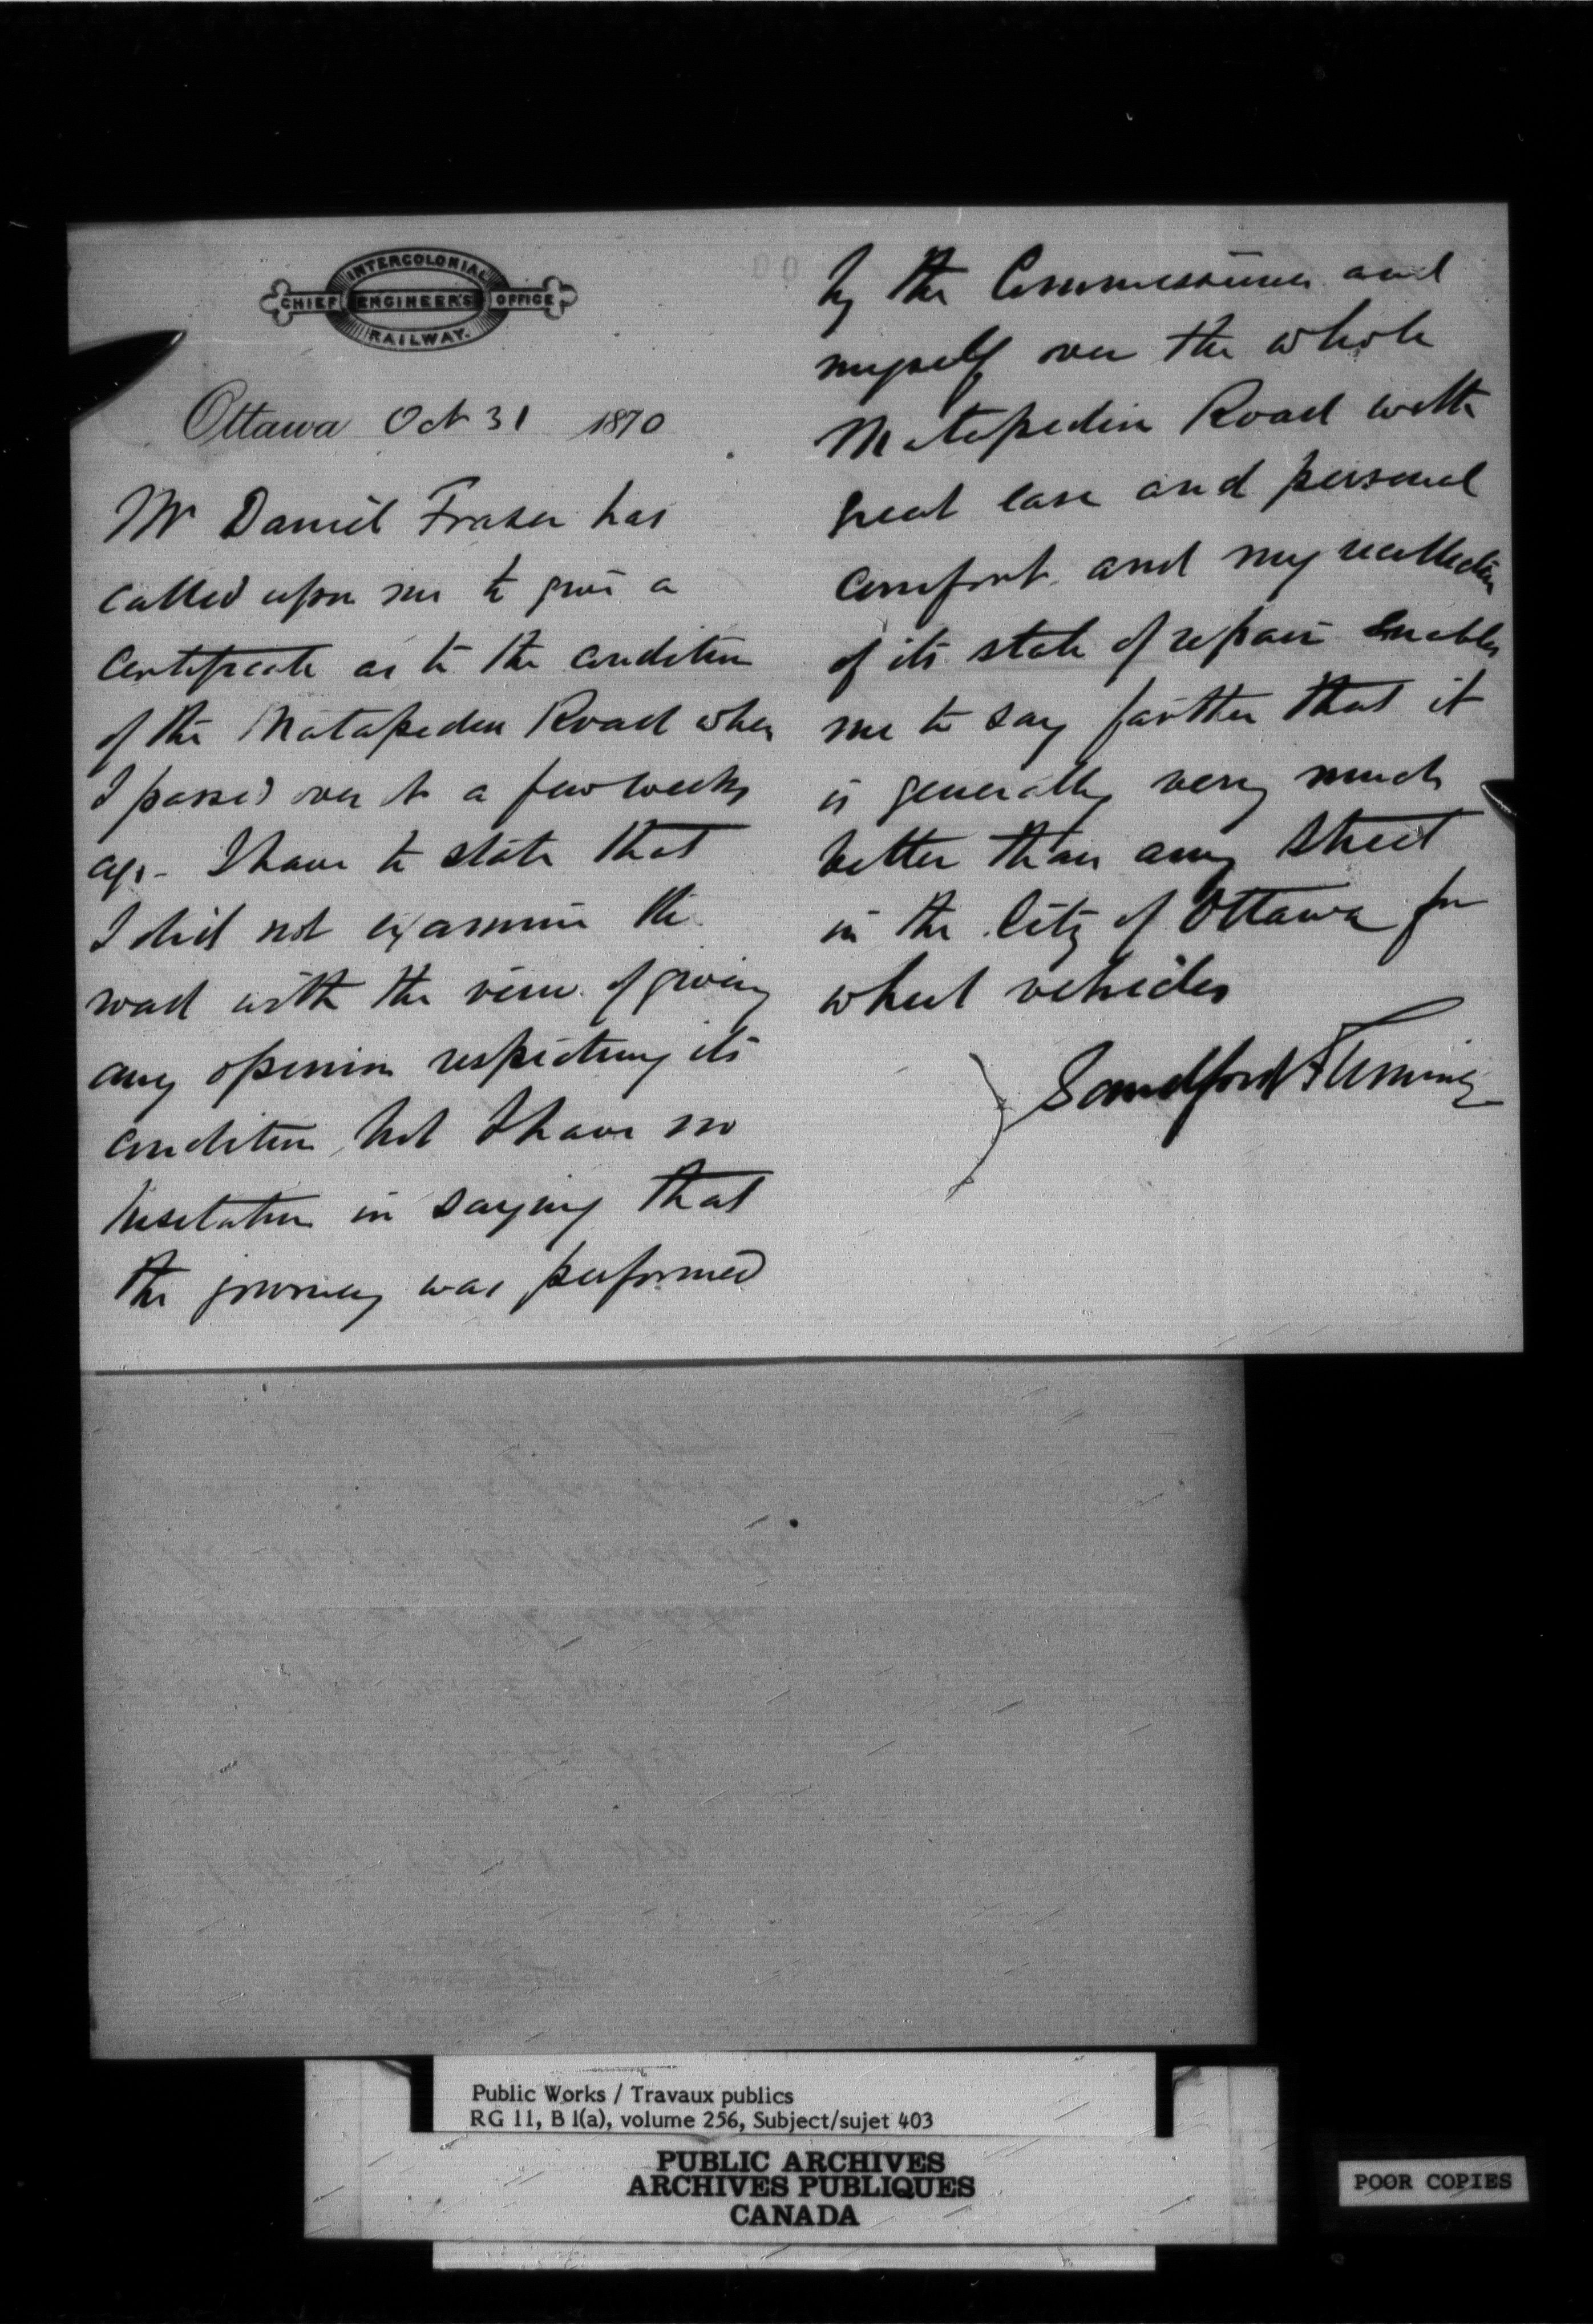 INTERCOLONIAL
CHIEF ENGINEER'S OFFICE
RAILWAY.
Ottawa Oct 31 1870
Mr Daniel Fraser has
called upon me to give a
certificate as to the condition
of the Matapedia Road when
I passed over it a few weeks
ago - I have to state that
I did not examine the
road with the view of giving
any opinion respecting its
condition, but I have no
hesitation in saying that
the journey was performed
by the Commissioners and
myself over the whole
Matapedia Road with
great ease and personal
comfort, and my recollection
of its state of repair enables
me to say farther that it
is generally very much
better than any street
in the City of Ottawa for
wheel vehicles
Sandford Fleming
Public Works / Travaux publics
RG 11, B 1(a), volume 256, Subject/sujet 403
PUBLIC ARCHIVES
ARCHIVES PUBLIQUES
CANADA
POOR COPIES